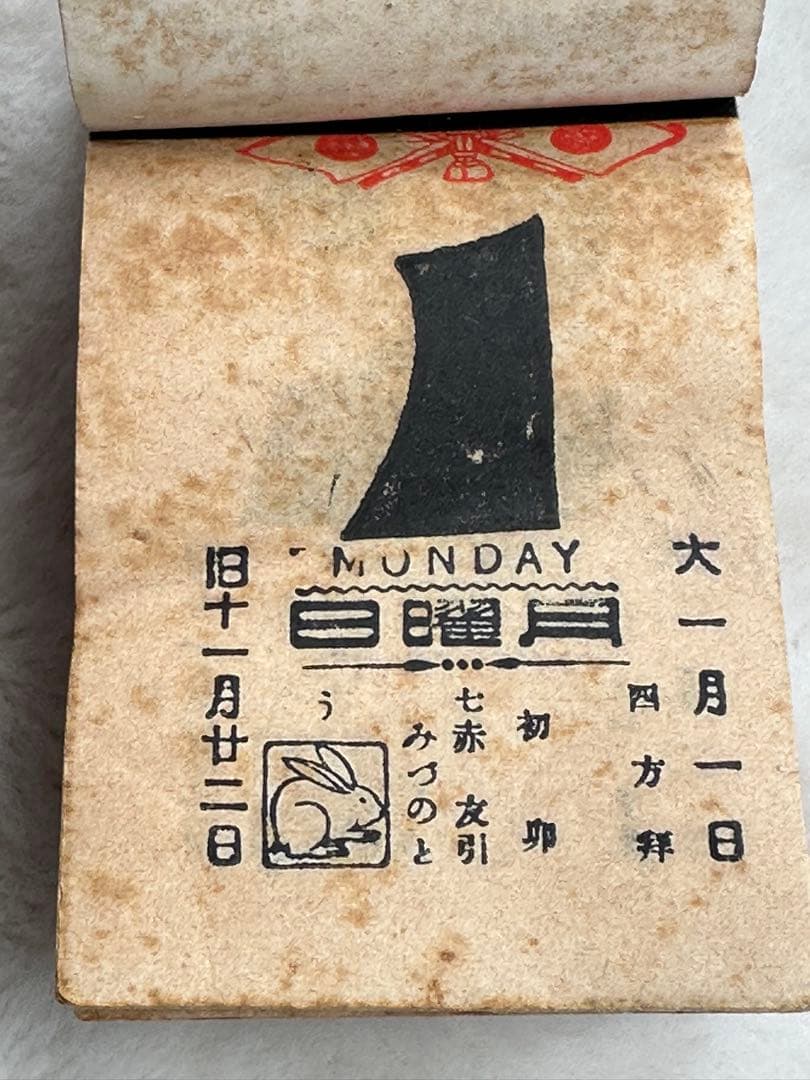 1
MONDAY
日曜月
大一月一日
四方拜
初卯
七赤 友引
みづのと
う
旧十一月廿二日